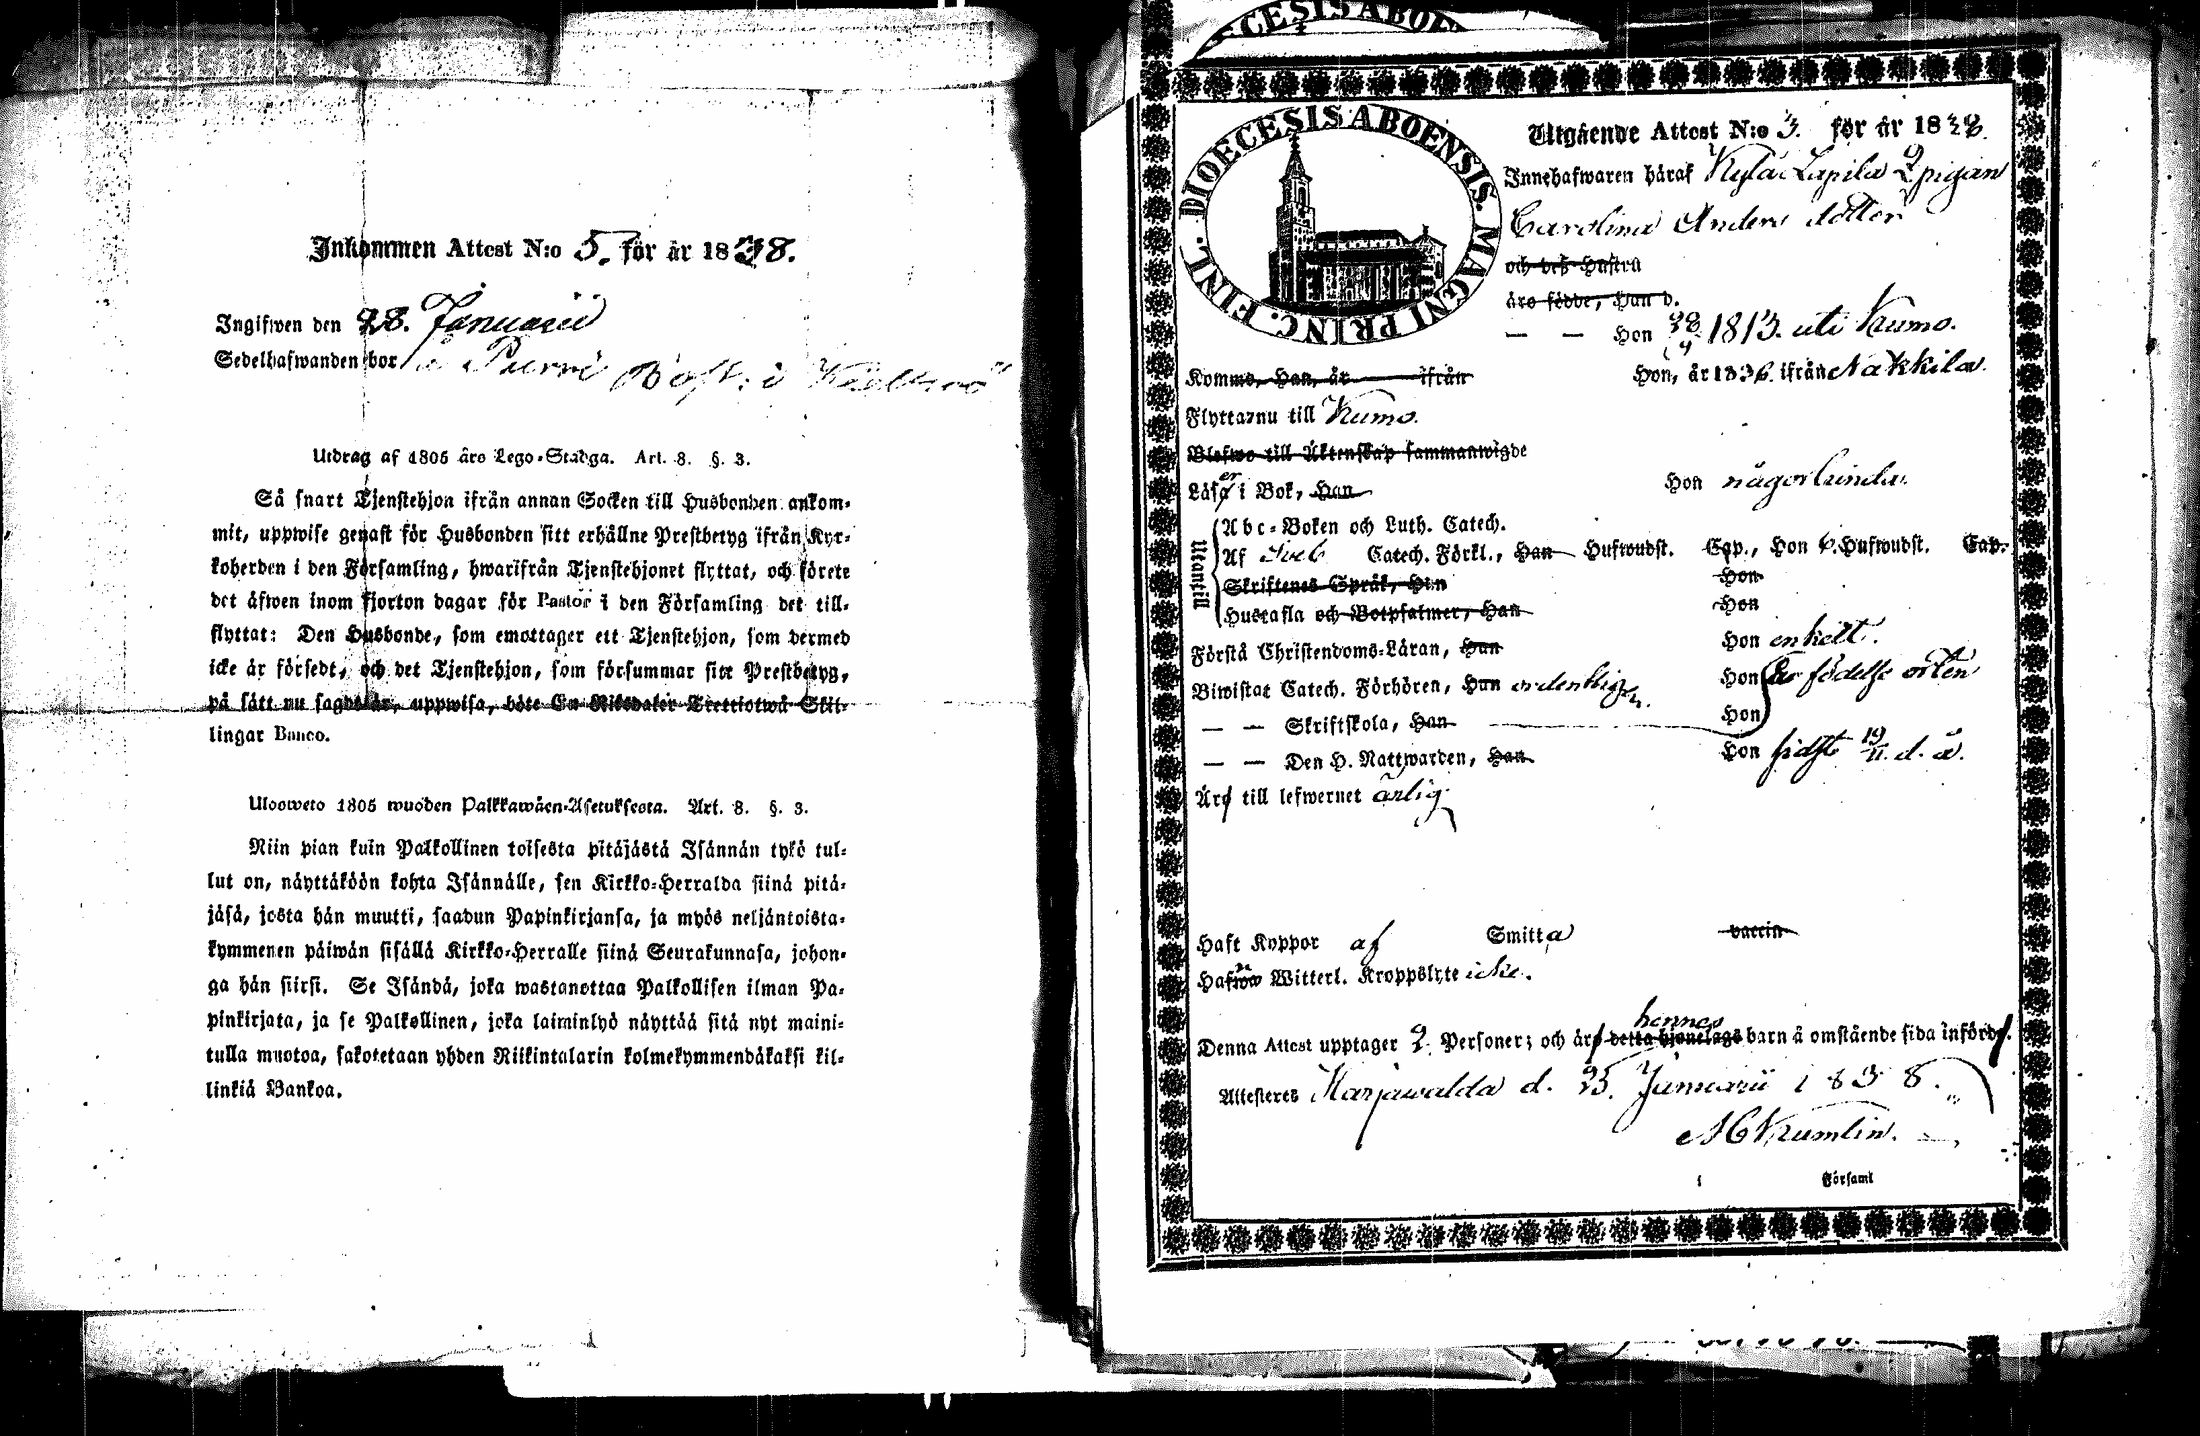 Inkommen Attest N:o 5. för år 1838.
Ingifwen den 28. Januarii
Sedelhafwanden bor i
Utdrag af 1805 års Lego-Stadga. Art. 8. §. 3.
Så snart Tjenstehjon ifrån annan Socken till Husbonden ankom-
mit, uppwise genast för Husbonden sitt erhållne Prestbetyg ifrån Kyr-
koherden i den Församling, hwarifrån Tjenstehjonet flyttat, och förete
det äfwen inom fjorton dagar för Pastor i den Församling det till-
flyttat: Den Husbonde, som emottager ett Tjenstehjon, som dermed
icke är försedt, och det Tjenstehjon, som försummar sitt Prestbetyg,
på sätt nu sagdt är, uppwisa, böte En Riksdaler Trettiotwå Skil-
lingar Banco.
Ulosweto 1805 wuoden Palkkawäen-Asetuksesta. Art. 8. §. 3.
Niin pian kuin Palkollinen toisesta pitäjästä Isännän tykö tul-
lut on, näyttäköön kohta Isännälle, sen Kirkko-Herralda siinä pitä-
jäsä, josta hän muutti, saadun Papinkirjansa, ja myös neljäntoista-
kymmenen päiwän sisällä Kirkko-Herralle siinä Seurakunnasa, johon-
ga hän siirsi. Se Isändä, joka wastanottaa Palkollisen ilman Pa-
pinkirjata, ja se Palkollinen, joka laiminlyö näyttää sitä nyt maini-
tulla muotoa, sakotetaan yhden Riikintalarin kolmekymmendäkaksi kil-
linkiä Bankoa.
DIOECESIS ABOE
DIOECESIS ABOENSIS. MAGNI PRINC. FINL.
Utgående Attest N:o 3. för år 1838.
Innehafwaren häraf Kylä-Lapila pigan
Carolina Anders dotter
och des Hustru
äro födde, Han d.
— — Hon 28 1813. uti Kumo.
Kommo, Han, år ifrån Hon, år 1836. ifrån Nakkila.
Flyttar nu till Kumo.
Blefwo till Äktenskap sammanwigde
Läser i Bok, Han Hon någorlunda.
Utantill
Abc-Boken och Luth. Catech.
Af Sveb Catech. Förkl., Han Hufwudst. Cap., Hon 6. Hufwudst. Cap.
Skriftenes Språk, Han Hon
Hustafla och Botpsalmer, Han Hon
Förstå Christendoms-Läran, Han Hon enkelt.
Biwistat Catech. Förhören, Han ordentligen. Hon födelse orten
— — Skriftskola, Han Hon
— — Den H. Nattwarden, Han Hon sidst 19/11 d. å.
Är till lefwernet ärlig
Haft Koppor af Smitta vaccin
Hafwa Witterl. Kroppslyte icke.
Denna Attest upptager 2 Personer; och är hennes detta hjonelags barn å omstående sida införde.
Attesteres Harjawalda d. 25. Januarii 1838.
Krumlin.
i Församl